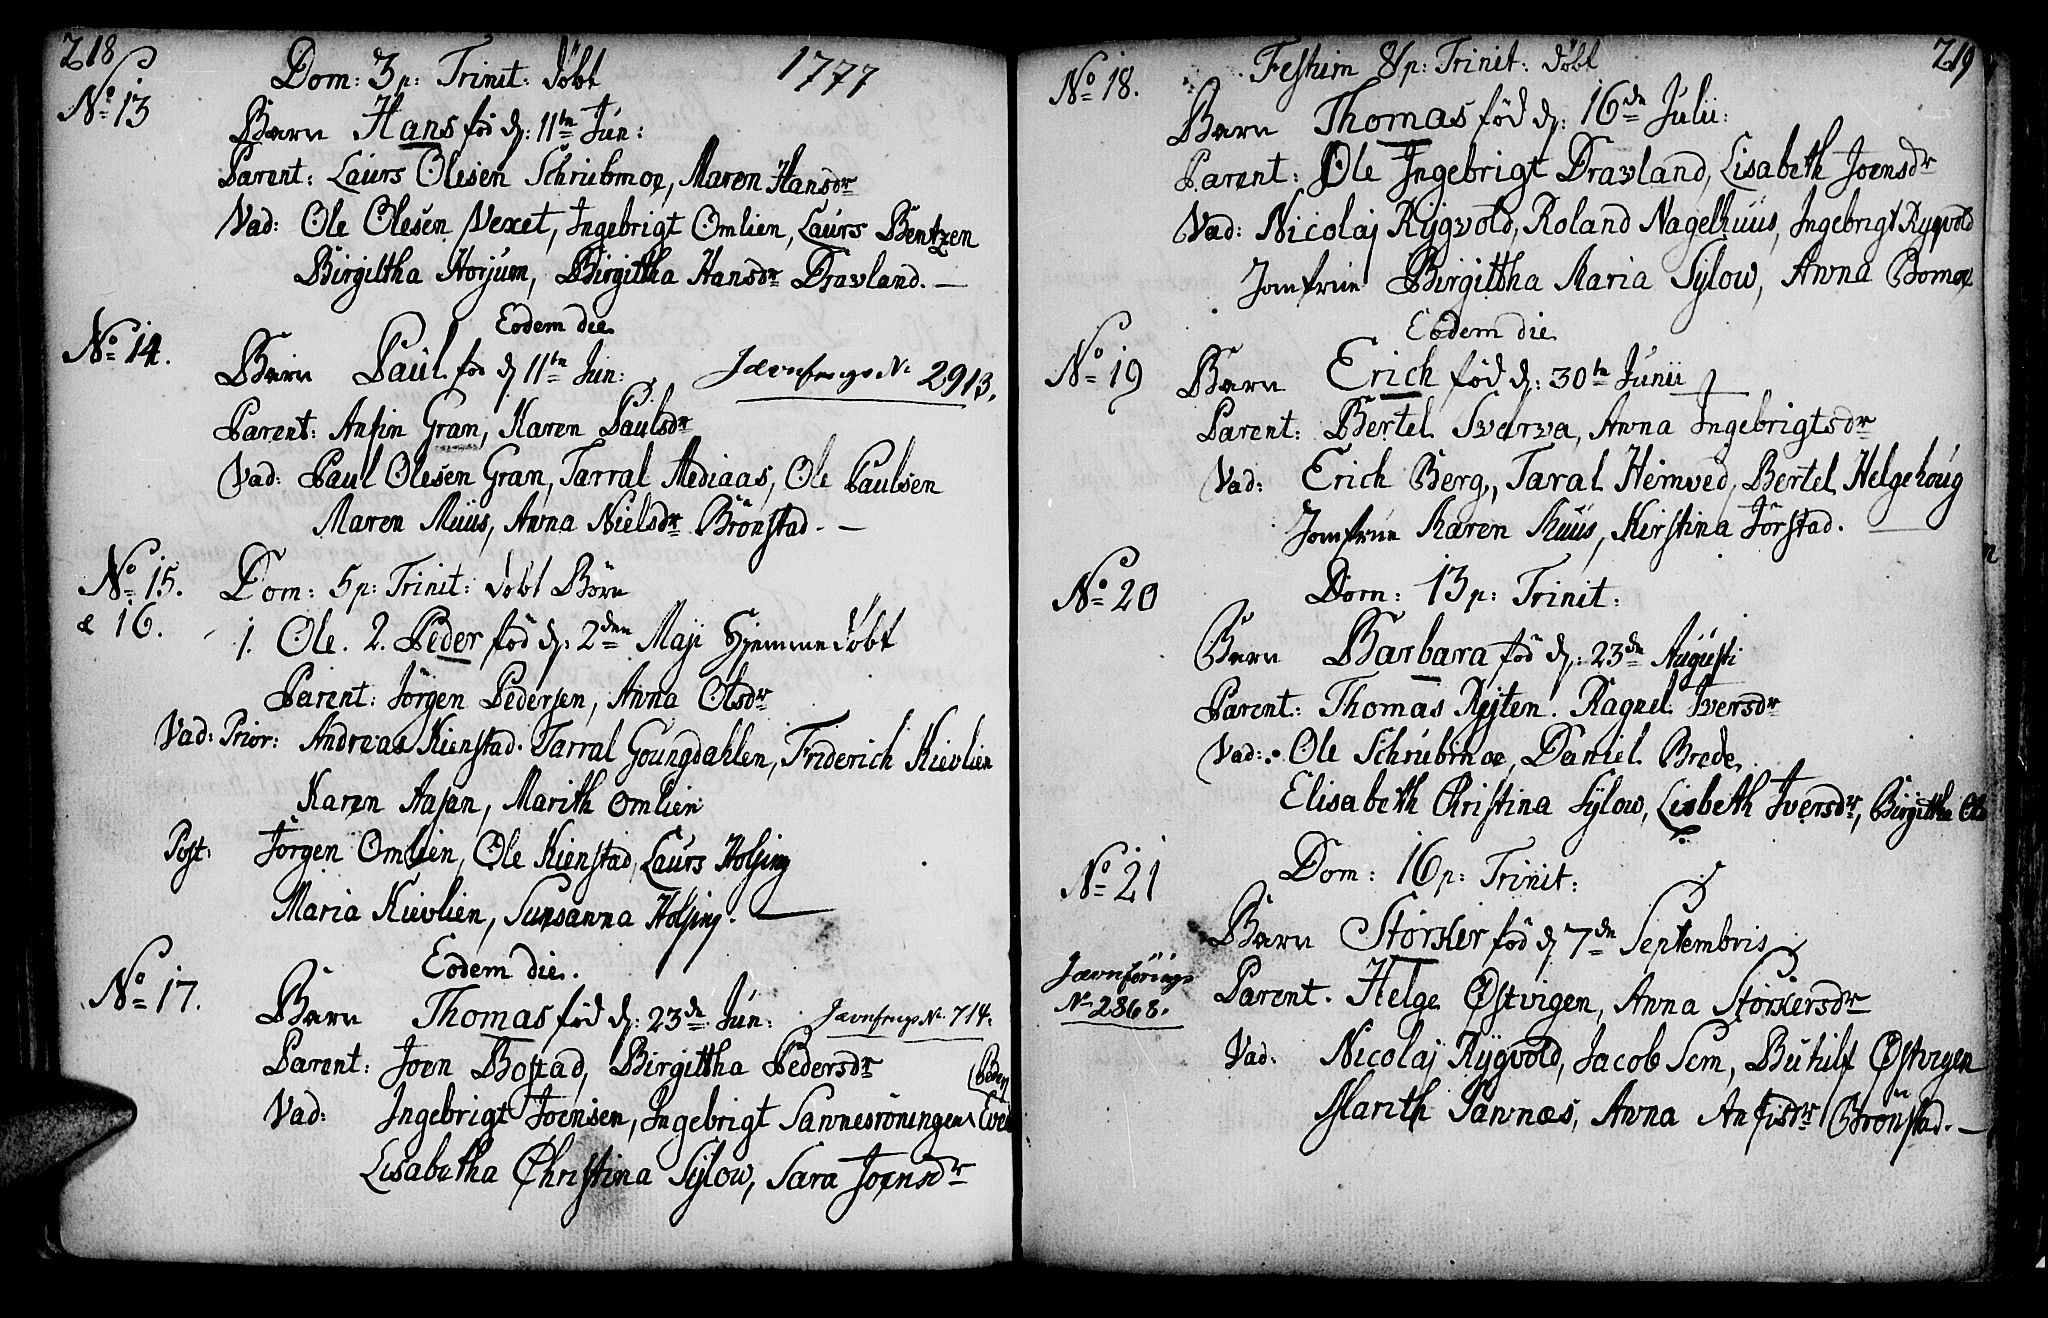 218
Dom: 3 p: Trinit: døbt 1777
No 13
Barn Hans fød d: 11te Jun:
Parent: Laurs Olesen Schrubmoe, Maren Hansdr
Vad: Ole Olesen Vexet, Ingebrigt Omlien, Laurs Bentzen
Birgittha Horjum, Birgittha Hansdr Dravland. —
Eodem die
No 14.
Barn Paul fød d 11te Jun: Jævnførings No 2913.
Parent: Anfin Gran, Karen Paulsdr
Vad: Paul Olesen Gran, Tarral Mediaas, Ole Paulsen
Maren Muus, Anna Nielsdr Brønstad. —
No 15. Dom: 5 p: Trinit: døbt Børn
& 16. 1. Ole. 2. Peder fød d: 2den Maji Hjemmedøbt
Parent: Jørgen Pedersen, Anna Olsdr
Vad: Prior: Andreas Kienstad. Tarral Goungdahlen, Friderich Kievlien
Karen Aasan, Marith Omlien
Post: Jørgen Omlien, Ole Kienstad, Laurs Holsing
Maria Kievlien, Sunsanna Holsing. —
Eodem die.
No 17.
Barn Thomas fød d: 23de Jun: Jævnførings No 714.
Parent: Joen Bostad, Birgittha Pedersdr
Vad: Ingebrigt Joensen, Ingebrigt Sannesrøningen,
Lisabetha Christina Sylow, Sara Joensdr
219
No 18. Festum 8 p: Trinit: døbt
Barn Thomas fød d: 16de Julii:
Parent: Ole Ingebrigt Dravland, Lisabeth Joensdr
Vad: Nicolaj Rygvold, Roland Nagelhuus, Ingebrigt Rygvold
Jomfrue Birgittha Maria Sylow, Anna Bomoe
Eodem die
No 19
Barn Erich fød d: 30te Junii
Parent: Bertel Svedrva, Anna Ingebrigtsdr
Vad: Erich Berg, Taral Hemved, Bertel Helgehoug
Jomfrue Karen Muus, Kirstina Jørstad.
No 20 Dom: 13 p: Trinit:
Barn Barbara fød d: 23de Augusti
Parent: Thomas Rejten. Ragnel Iversdr
Vad: Ole Schrubmoe, Daniel Brede,
Elisabeth Christina Sylow, Lisbeth Iversdr, Birgittha
Dom: 16 p: Trinit:
No 21
Barn Størker fød d 7de Septembris
Jævnførings
No 2868.
Parent. Helge Østvigen, Anna Størkersdr
Vad: Nicolaj Rygvold, Jacob Sem, Buhilf Østvigen
Marith Sannæs, Anna Anfisdr Brønstad. —